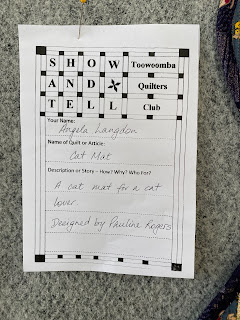 SHOW Toowoomba
AND Quilters
TELL Club
Your Name:
Angela Langdon
Name of Quilt or Article:
Cat Mat
Description or Story – How? Why? Who For?
A cat mat for a cat
lover.
Designed by Pauline Rogers